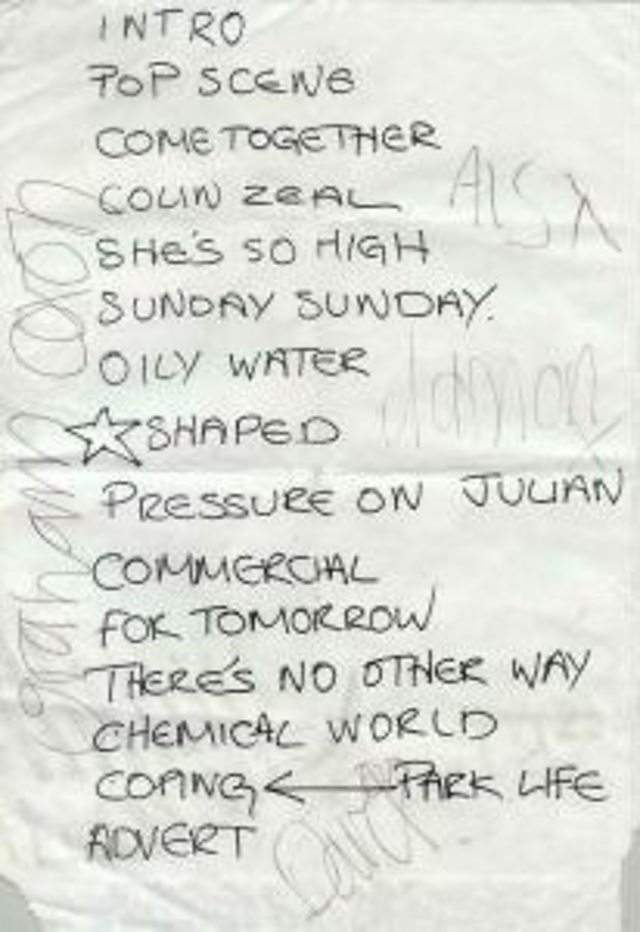 INTRO
POP SCENE
COME TOGETHER
COLIN ZEAL
Alex
SHE'S SO HIGH
SUNDAY SUNDAY.
OILY WATER
damon
☆ SHAPED
PRESSURE ON JULIAN
COMMERCIAL
FOR TOMORROW
THERE'S NO OTHER WAY
CHEMICAL WORLD
COPING ← PARK LIFE
ADVERT
Dave
graham coxon